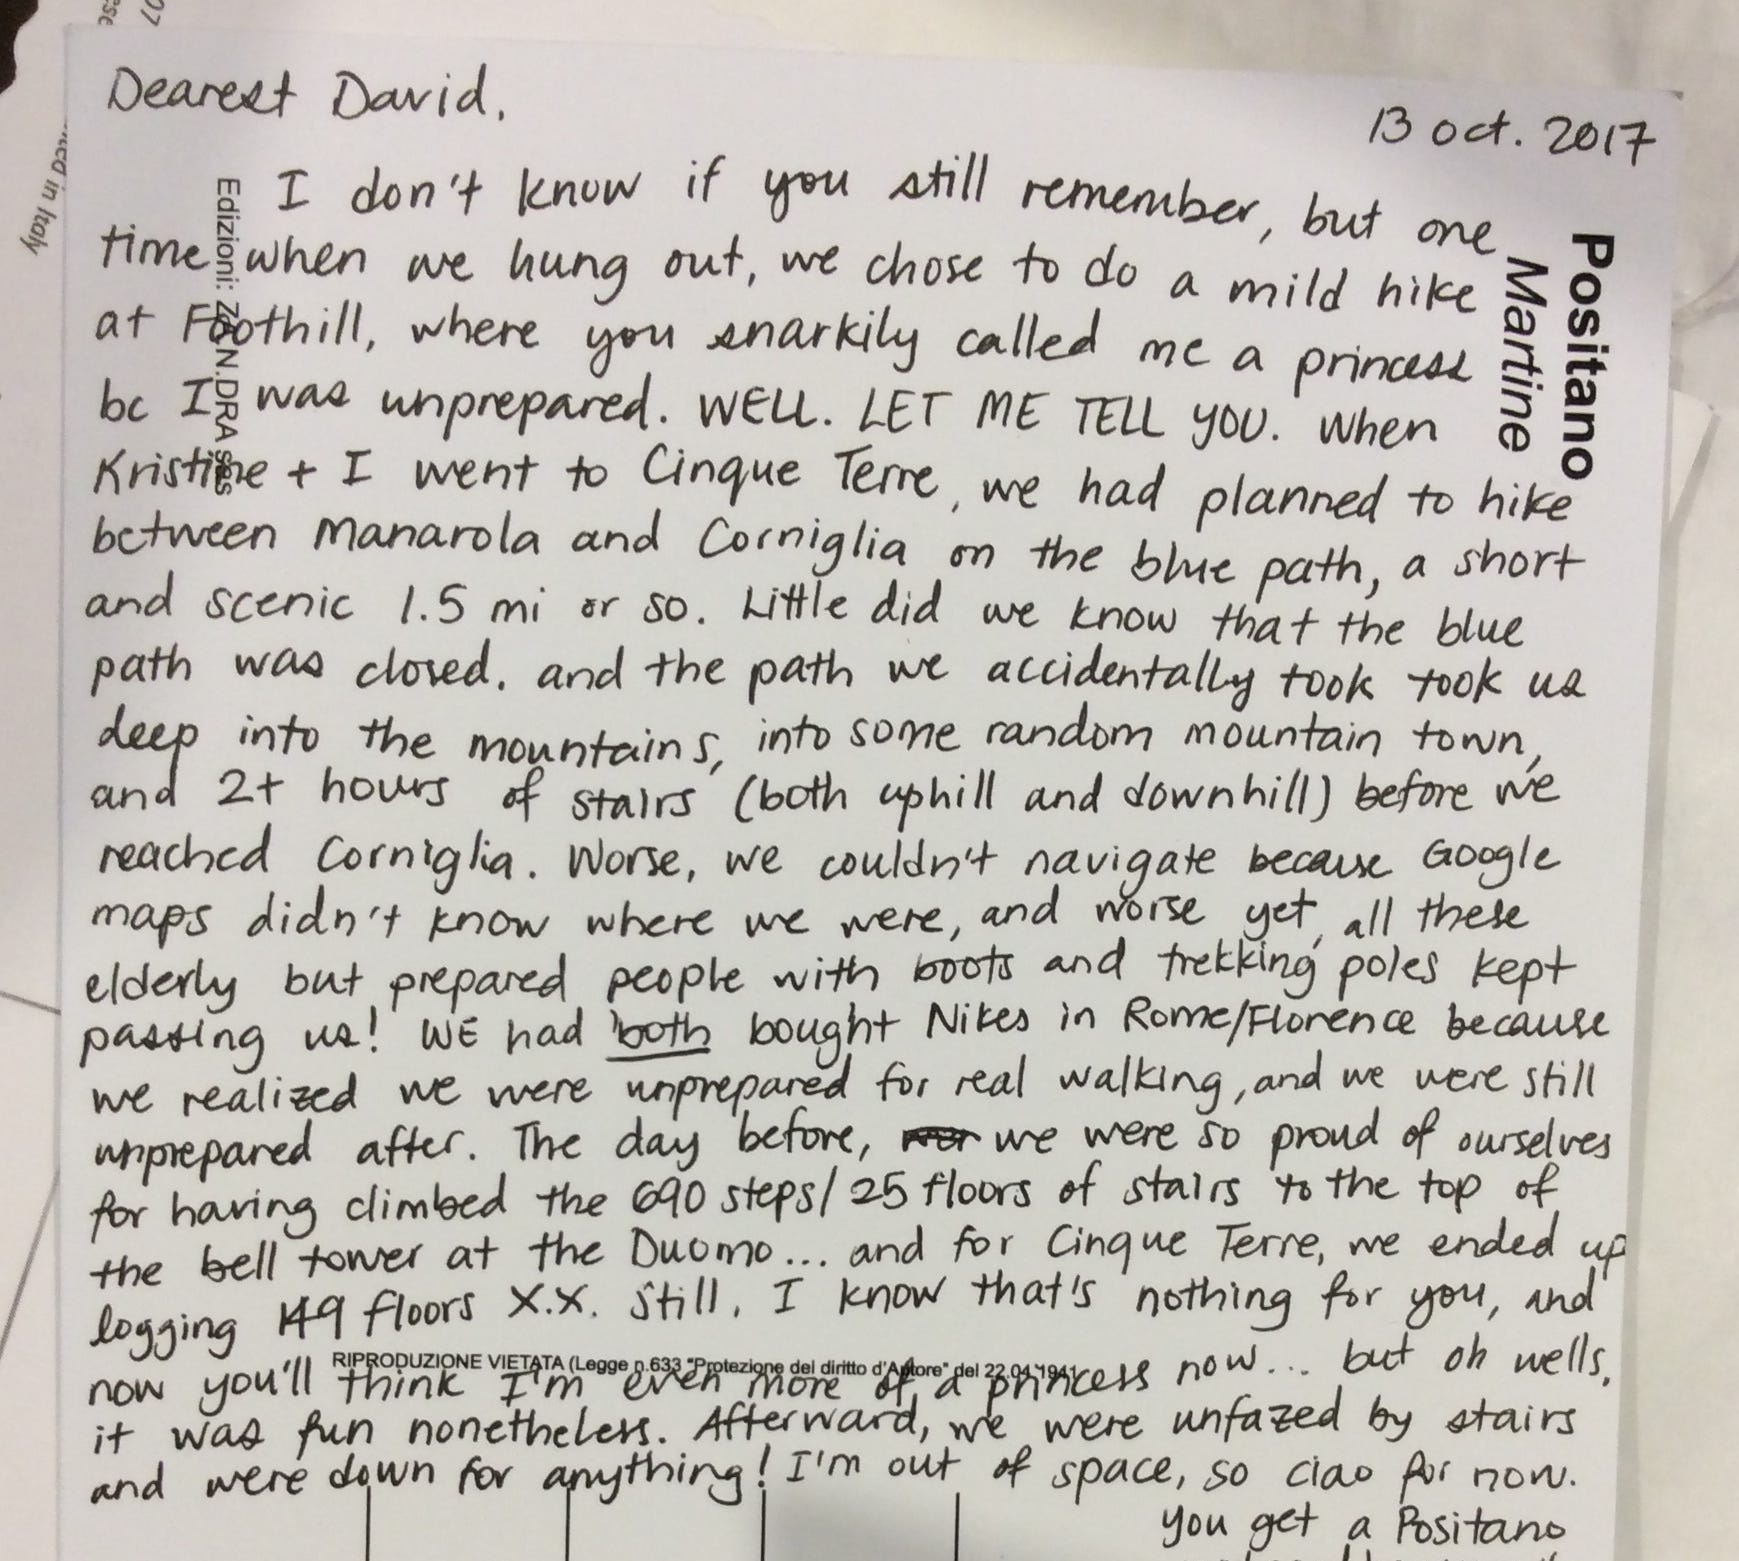 Dearest David,
13 oct. 2017
I don't know if you still remember, but one
time when we hung out, we chose to do a mild hike
at Foothill, where you snarkily called me a princess
bc I was unprepared. WELL. LET ME TELL YOU. When
Kristine + I went to Cinque Terre, we had planned to hike
between Manarola and Corniglia on the blue path, a short
and scenic 1.5 mi or so. Little did we know that the blue
path was closed. and the path we accidentally took took us
deep into the mountains, into some random mountain town,
and 2+ hours of stairs (both uphill and downhill) before we
reached Corniglia. Worse, we couldn't navigate because Google
maps didn't know where we were, and worse yet, all these
elderly but prepared people with boots and trekking poles kept
passing us! WE had both bought Nikes in Rome/Florence because
we realized we were unprepared for real walking, and we were still
unprepared after. The day before, we were so proud of ourselves
for having climbed the 690 steps/25 floors of stairs to the top of
the bell tower at the Duomo... and for Cinque Terre, we ended up
logging 149 floors X.X. Still, I know that's nothing for you, and
now you'll think I'm even more of a princess now... but oh wells,
it was fun nonetheless. Afterward, we were unfazed by stairs
and were down for anything! I'm out of space, so ciao for now.
You get a Positano
Positano
Martine
Edizioni: N.DRA sas
RIPRODUZIONE VIETATA (Legge n.633 "Protezione del diritto d'Autore" del 22.04.1941
in Italy
07